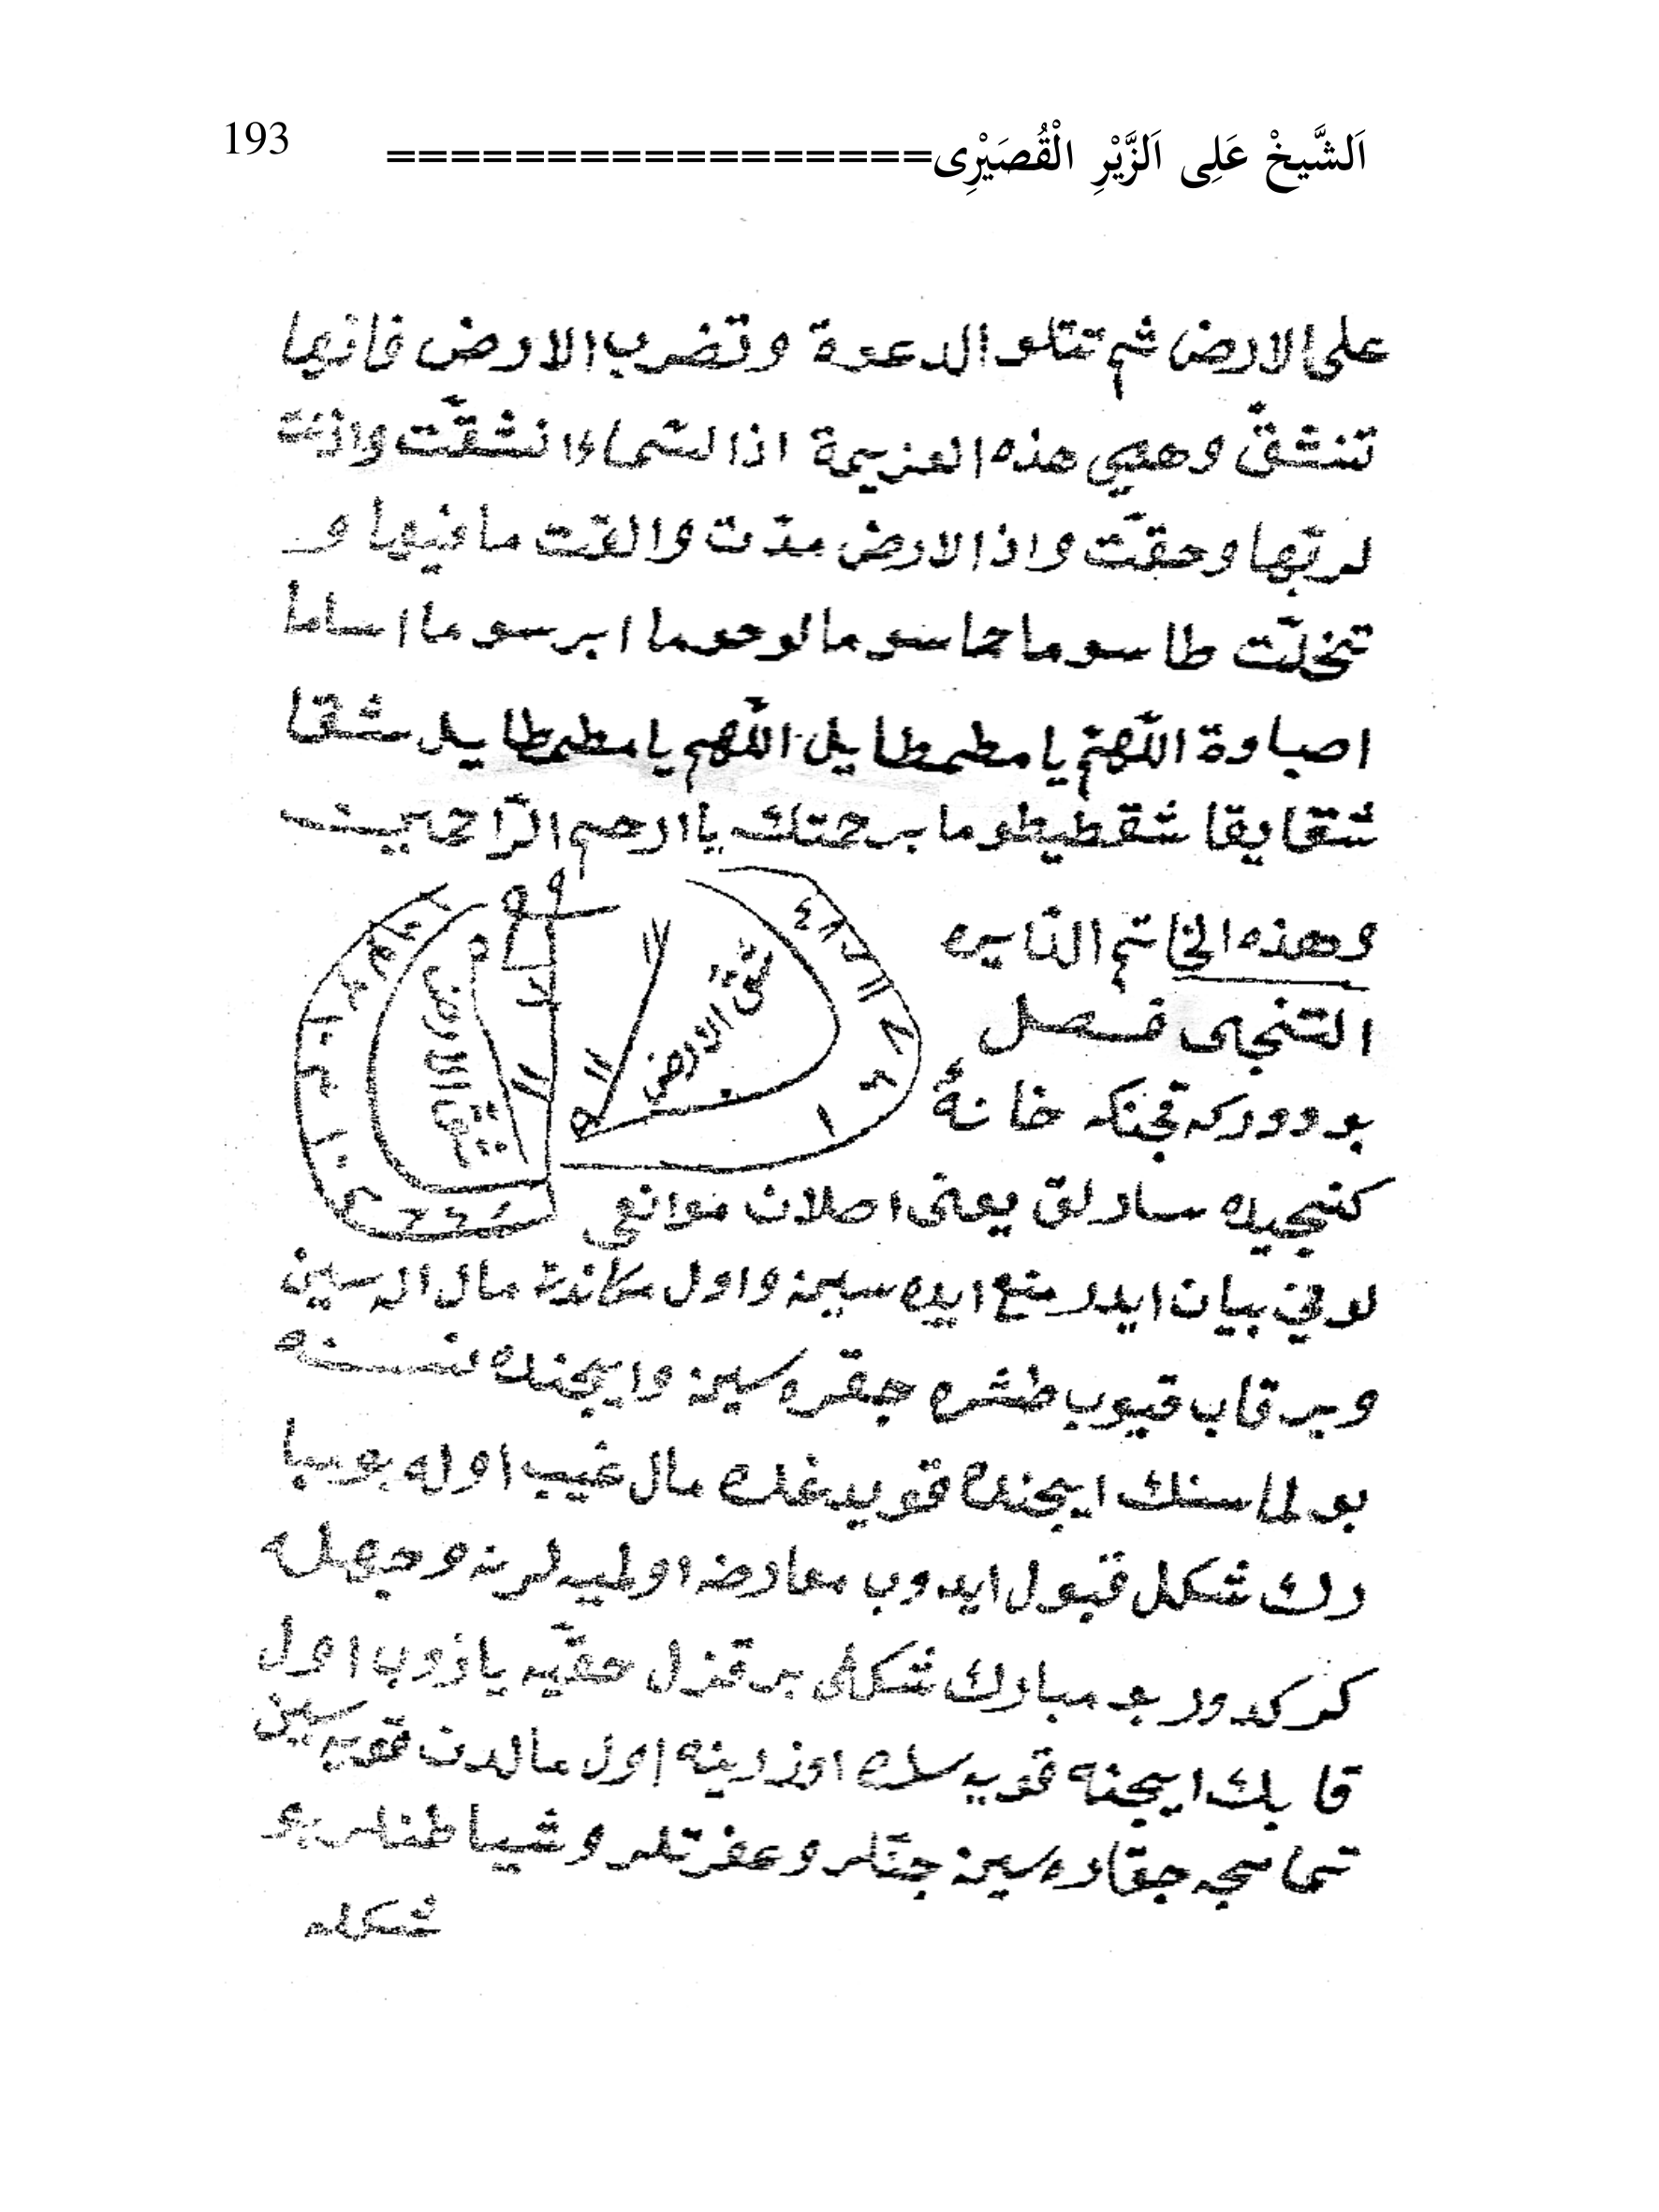 193
اَلشَّيخْ عَلِى اَلزَّيْرِ الْقُصَيْرِى=================
على الارض ثم تتلو الدعوة وتضرب الارض فانها
تنشقّ وهي هذه العزيمة اذا السّماء انشقّت واذنت
لربّها وحقّت واذا الارض مدّت والقت ما فيها و
تخلّت طاسوما حاسوما لوحوما ابرسوما اساما
اصباوة اللّهمّ يا مطمطايل اللّهم يا مطمطايل شقا
شقايقا شقطيطوما برحمتك يا ارحم الرّاحمين
وهذه الخاتم النّايره
التنجى فصل
بو دوركه قچنكه خانۀ
كنجيده سارلق يعنى اصلان موانعى
لرفى بيان ايدر منع ايده سين واول مكانده مال اله سين
وبر قاب قيوب طشره جيقره سين وايچنده نسنه
بولماسنك ايچنده قويدغك مال غيب اوله بو مبا
رك شكل قبول ايدوب معارضه اولميه لر نه وجهله
كركدور بو مبارك شكلى بر قزل حقّيه يازوب اول
قابك ايچنه قويه سك اوزرينه اول مالدن قويه سين
تماميجه جقاره سين جنّلر وعفرتلر وشياطنلر بو
شكله
شق الارض
شق الارض